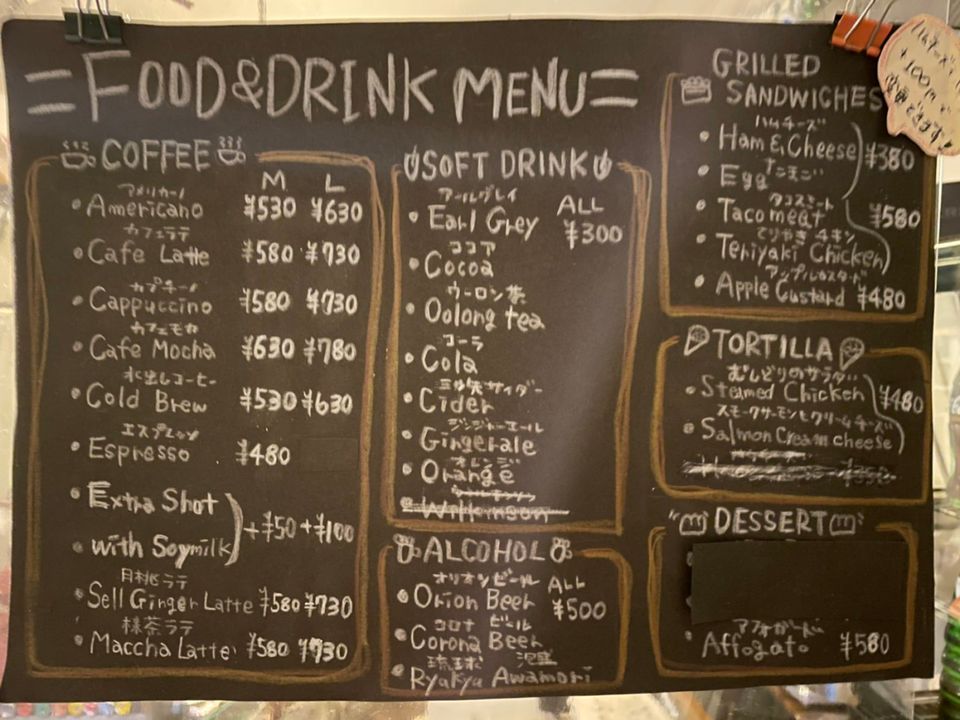 =FOOD&DRINK MENU=
COFFEE
M L
アメリカーノ
• Americano ¥530 ¥630
カフェラテ
• Cafe Latte ¥580 ¥730
カプチーノ
• Cappuccino ¥580 ¥730
カフェモカ
• Cafe Mocha ¥630 ¥780
水出しコーヒー
• Cold Brew ¥530 ¥630
エスプレッソ
• Espresso ¥480
• Extra Shot
• with Soymilk +¥50 +¥100
月桃ラテ
• Sell Ginger Latte ¥580 ¥730
抹茶ラテ
• Maccha Latte ¥580 ¥730
SOFT DRINK
ALL
アールグレイ
• Earl Grey ¥300
ココア
• Cocoa
ウーロン茶
• Oolong tea
コーラ
• Cola
三ツ矢サイダー
• Cider
ジンジャーエール
• Gingerale
オレンジ
• Orange
ALCOHOL
オリオンビール ALL
• Orion Beer ¥500
コロナ ビール
• Corona Beer
琉球 泡盛
• Ryukyu Awamori
GRILLED
SANDWICHES
ハムチーズ
• Ham & Cheese ¥380
• Egg
タコスミート
• Taco meat ¥580
てりやきチキン
• Teriyaki Chicken
アップルカスタード
• Apple Custard ¥480
TORTILLA
むしどりのサラダ
• Steamed Chicken ¥480
スモークサーモンとクリームチーズ
• Salmon Cream cheese
DESSERT
アフォガード
• Affogato ¥580
+100円で